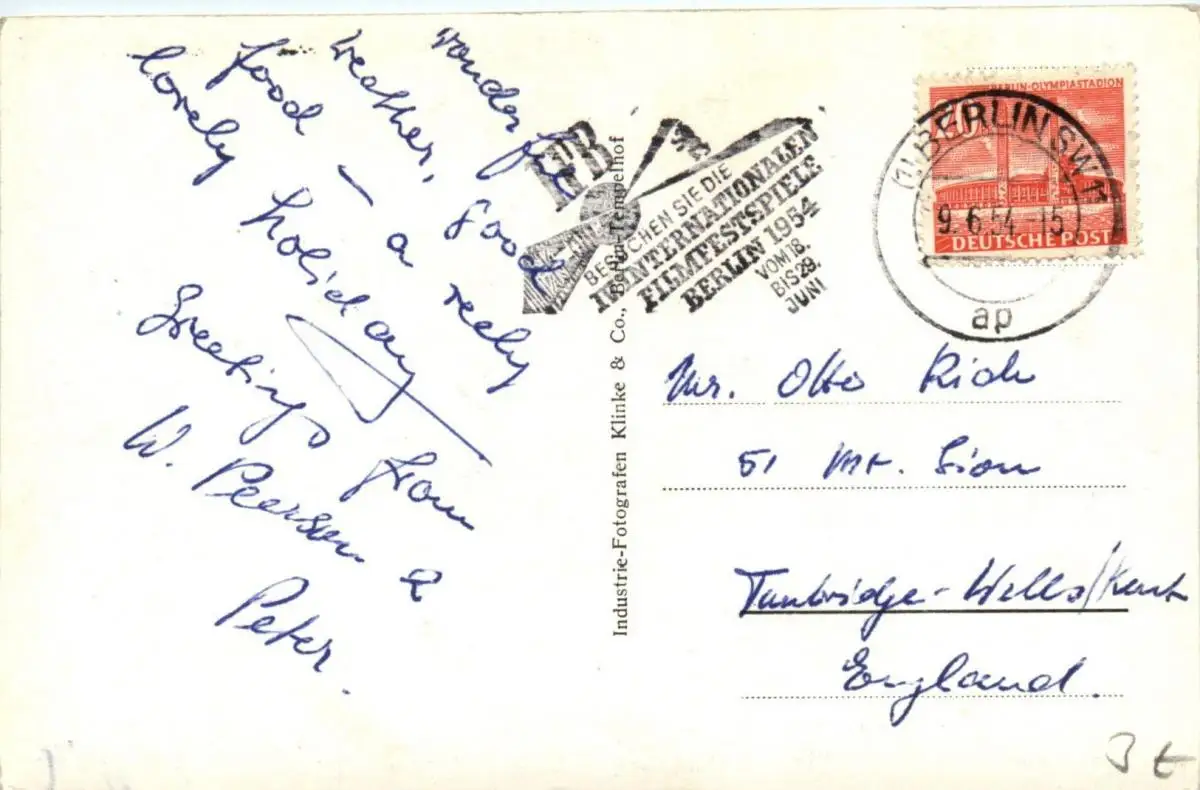 wonderful
weather, good
food – a really
lovely holiday
Greetings from
W. Pearson &
Peter.
Industrie-Fotografen Klinke & Co., Berlin-Tempelhof
BESUCHEN SIE DIE
INTERNATIONALEN
FILMFESTSPIELE
BERLIN 1954
VOM 18.
BIS 29.
JUNI
BERLIN-OLYMPIASTADION
20
DEUTSCHE POST
(1) BERLIN SW 11
9.6.54-15
ap
Mr. Otto Rich
51 Mt. Sion
Tunbridge-Wells/Kent
England.